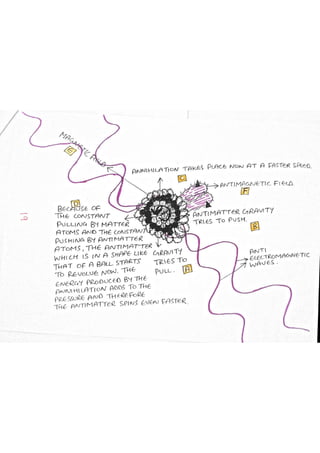 MAGNETIC FIELD
E
ANNIHILATION TAKES PLACE NOW AT A FASTER SPEED.
C
ANTIMAGNETIC FIELD.
F
D
BECAUSE OF
THE CONSTANT
PULLING BY MATTER
ATOMS AND THE CONSTANT
PUSHING BY ANTIMATTER
ATOMS, THE ANTIMATTER
WHICH IS IN A SHAPE LIKE
THAT OF A BALL STARTS
TO REVOLVE NOW. THE
ENERGY PRODUCED BY THE
ANNIHILATION ADDS TO THE
PRESSURE AND THEREFORE
THE ANTIMATTER SPINS EVEN FASTER.
ANTIMATTER GRAVITY
TRIES TO PUSH.
B
GRAVITY
TRIES TO
PULL.
A
ANTI
ELECTROMAGNETIC
WAVES.